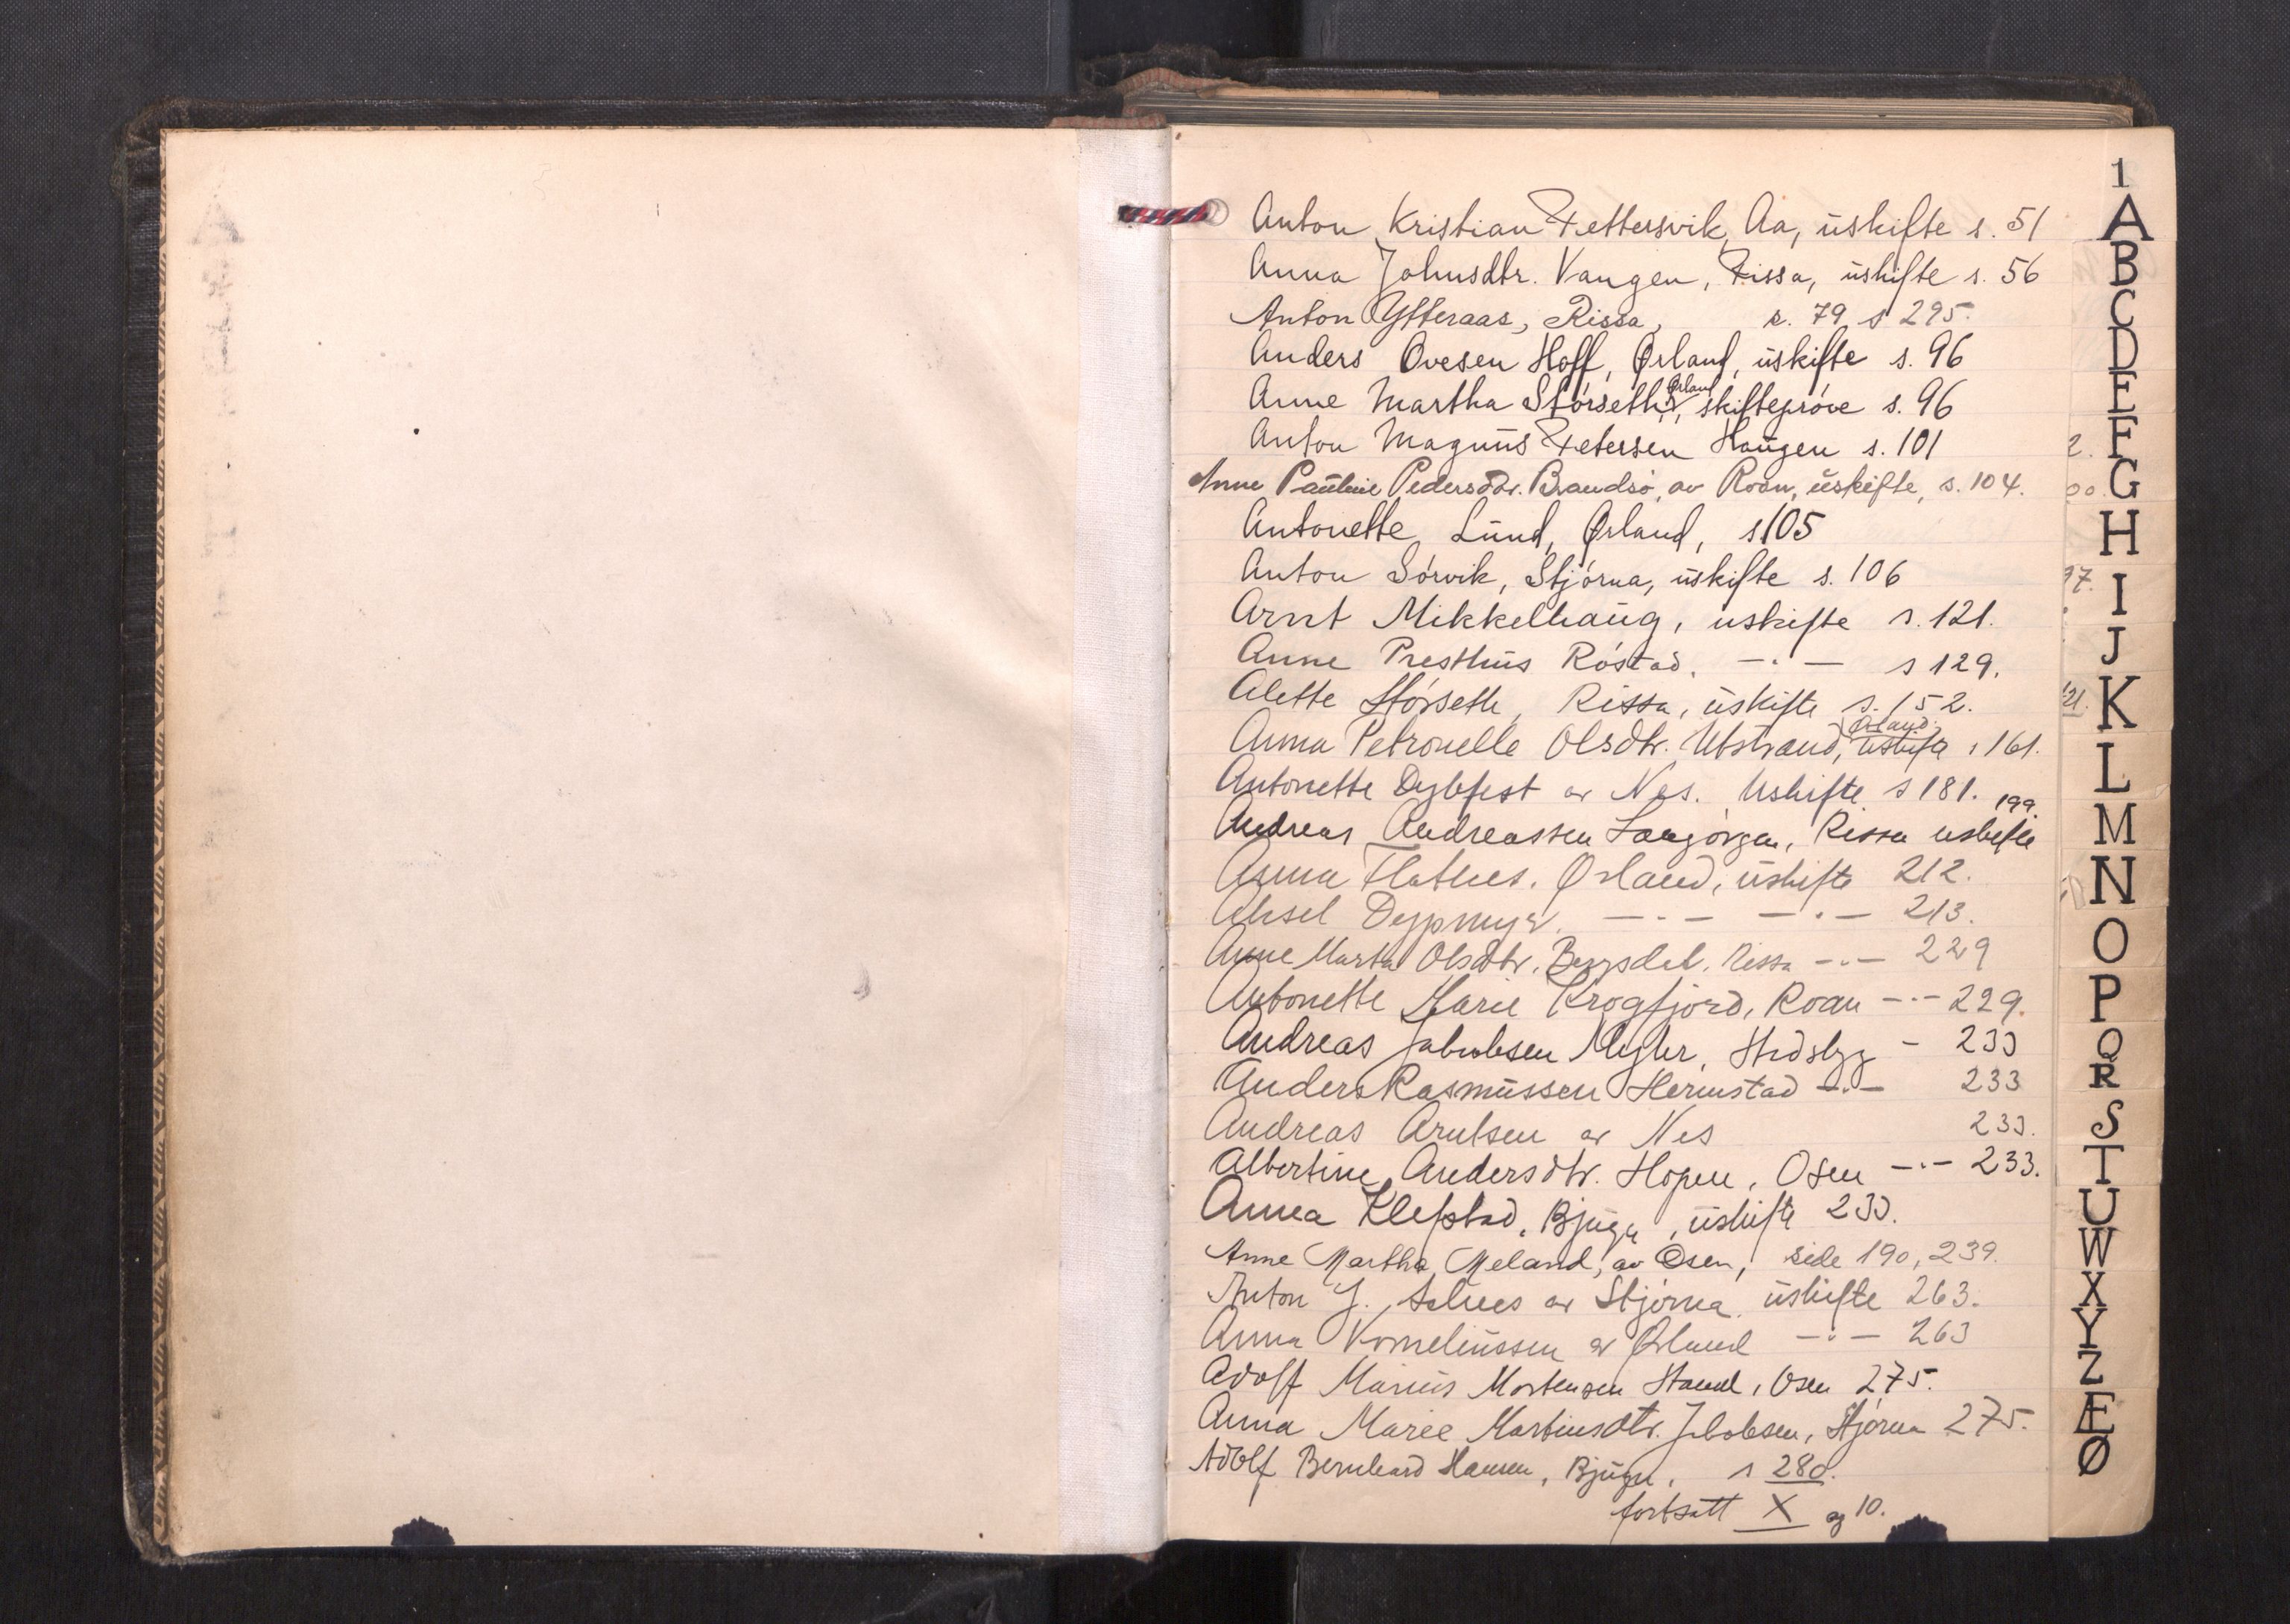 1
Anton Kristian Pettersvik, Aa, uskifte s. 51
Anna Johnsdtr. Vangen, Rissa, uskifte s. 56
Anton Ytteraas, Rissa, s. 79 s 295.
Anders Ovesen Hoff, Ørland, uskifte s. 96
Anne Martha Storseth, Ørland, skifteprøve s. 96
Anton Magnus Petersen Haugen s. 101
Anne Pauline Pedersdtr. Brandsø, av Roan, uskifte, s. 104.
Antonette Lund, Ørland, s 105
Anton Sørvik, Stjørna, uskifte s. 106
Arnt Mikkelhaug, uskifte s. 121.
Anne Presthus Røstad. —·— s 129.
Alette Størseth, Rissa, uskifte s. 152.
Anna Petronelle Olsdtr. Utstrand, Ørland. uskifte s 161.
Antonette Dybfest av Nes. Uskifte s 181.
Andreas Andreassen Langørgen, Rissa uskifte 199.
Anna Flatnes. Ørland, uskifte 212.
Aksel Dypmyr. —·— —·— 213.
Anne Marta Olsdtr. Bergsdal. Rissa —·— 229
Antonette Marie Krogfjord, Roan —·— 229.
Andreas Jakobsen Myhr, Stadsbygd - 233
Anders Rasmussen Hermstad —·— 233
Andreas Arntsen av Nes 233.
Albertine Andersdtr. Hopen, Osen —·— 233.
Anna Klefstad, Bjugn, uskifte 233.
Anne Martha Meland, av Osen, side 190, 239.
Anton J. av Stjørna uskifte 263.
Anna Korneliussen av Ørland —·— 263
Adolf Marius Mortensen Strand, Osen 275.
Anna Marie Martinsdtr. Jakobsen, Stjørna 275.
Adolf Bernhard Hansen, Bjugn. s 280.
fortsatt X og 10.
A
B
C
D
E
F
G
H
I
J
K
L
M
N
O
P
Q
R
S
T
U
W
X
Y
Z
Æ
Ø